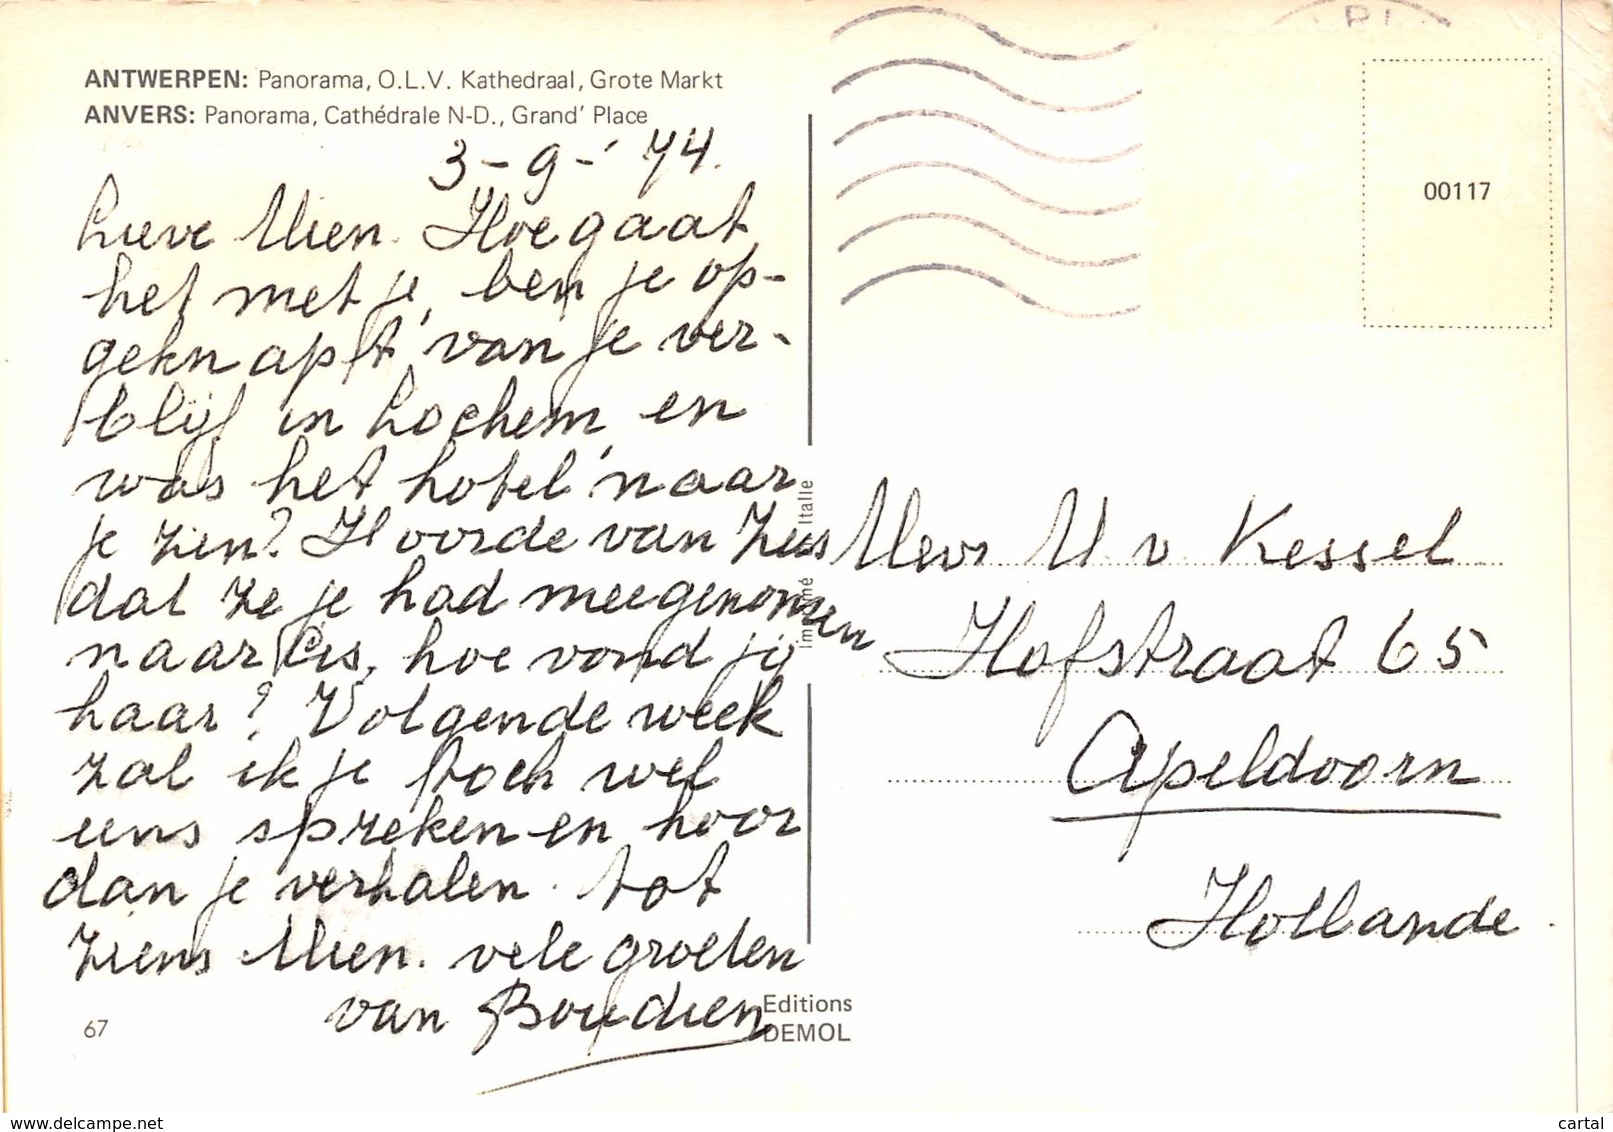 ANTWERPEN: Panorama, O.L.V. Kathedraal, Grote Markt
ANVERS: Panorama, Cathédrale N-D., Grand' Place
3-9-'74.
Lieve Mien. Hoe gaat
het met je, ben je op-
geknapt van je ver-
blijf in Lochem, en
was het hotel naar
je zien? Hoorde van Zus
dat ze je had meegenomen
naar Cis, hoe vond jij
haar? Volgende week
zal ik je toch wel
eens spreken en hoor
dan je verhalen. tot
ziens Mien. vele groeten
van Boudien
67
Editions
DEMOL
Imprimé Italie
00117
Mevr M. v. Kessel
Hofstraat 65
Apeldoorn
Hollande
www.delcampe.net
cartal